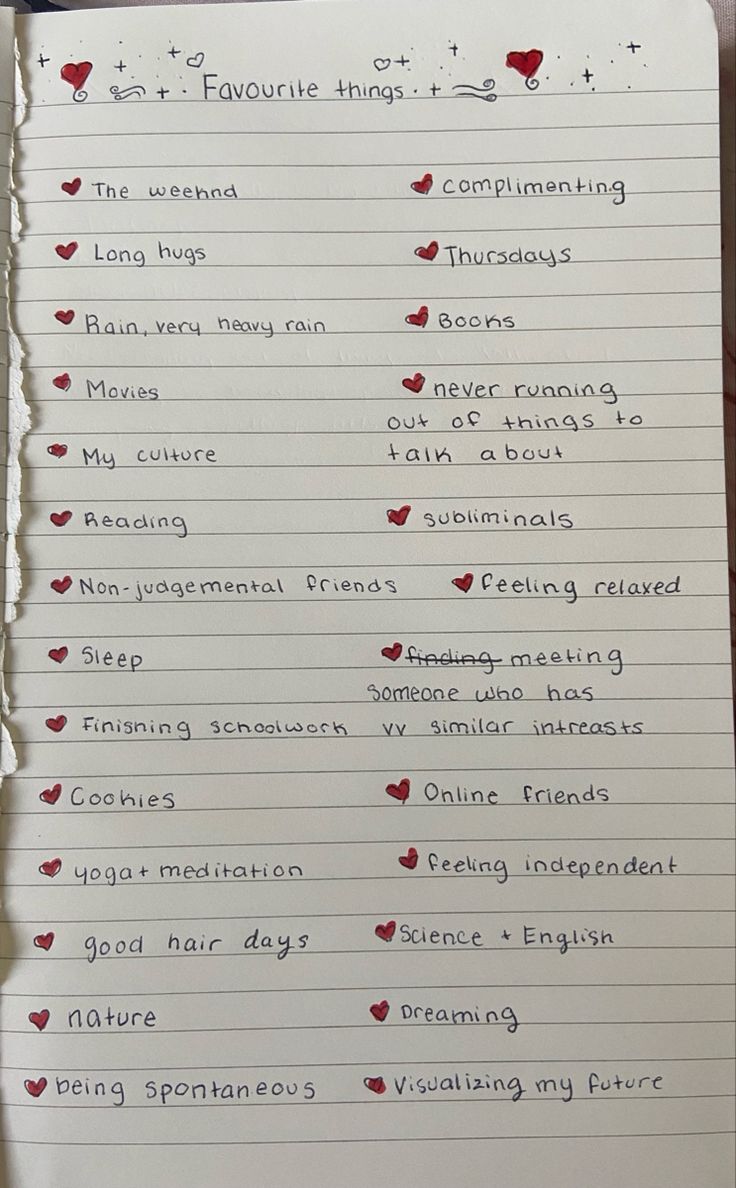 Favourite things
The weeknd
Long hugs
Rain, very heavy rain
Movies
My culture
Reading
Non-judgemental friends
Sleep
Finishing schoolwork
Cookies
yoga + meditation
good hair days
nature
being spontaneous
complimenting
Thursdays
Books
never running
out of things to
talk about
subliminals
feeling relaxed
finding meeting
someone who has
vv similar intreasts
Online friends
feeling independent
Science + English
Dreaming
Visualizing my future